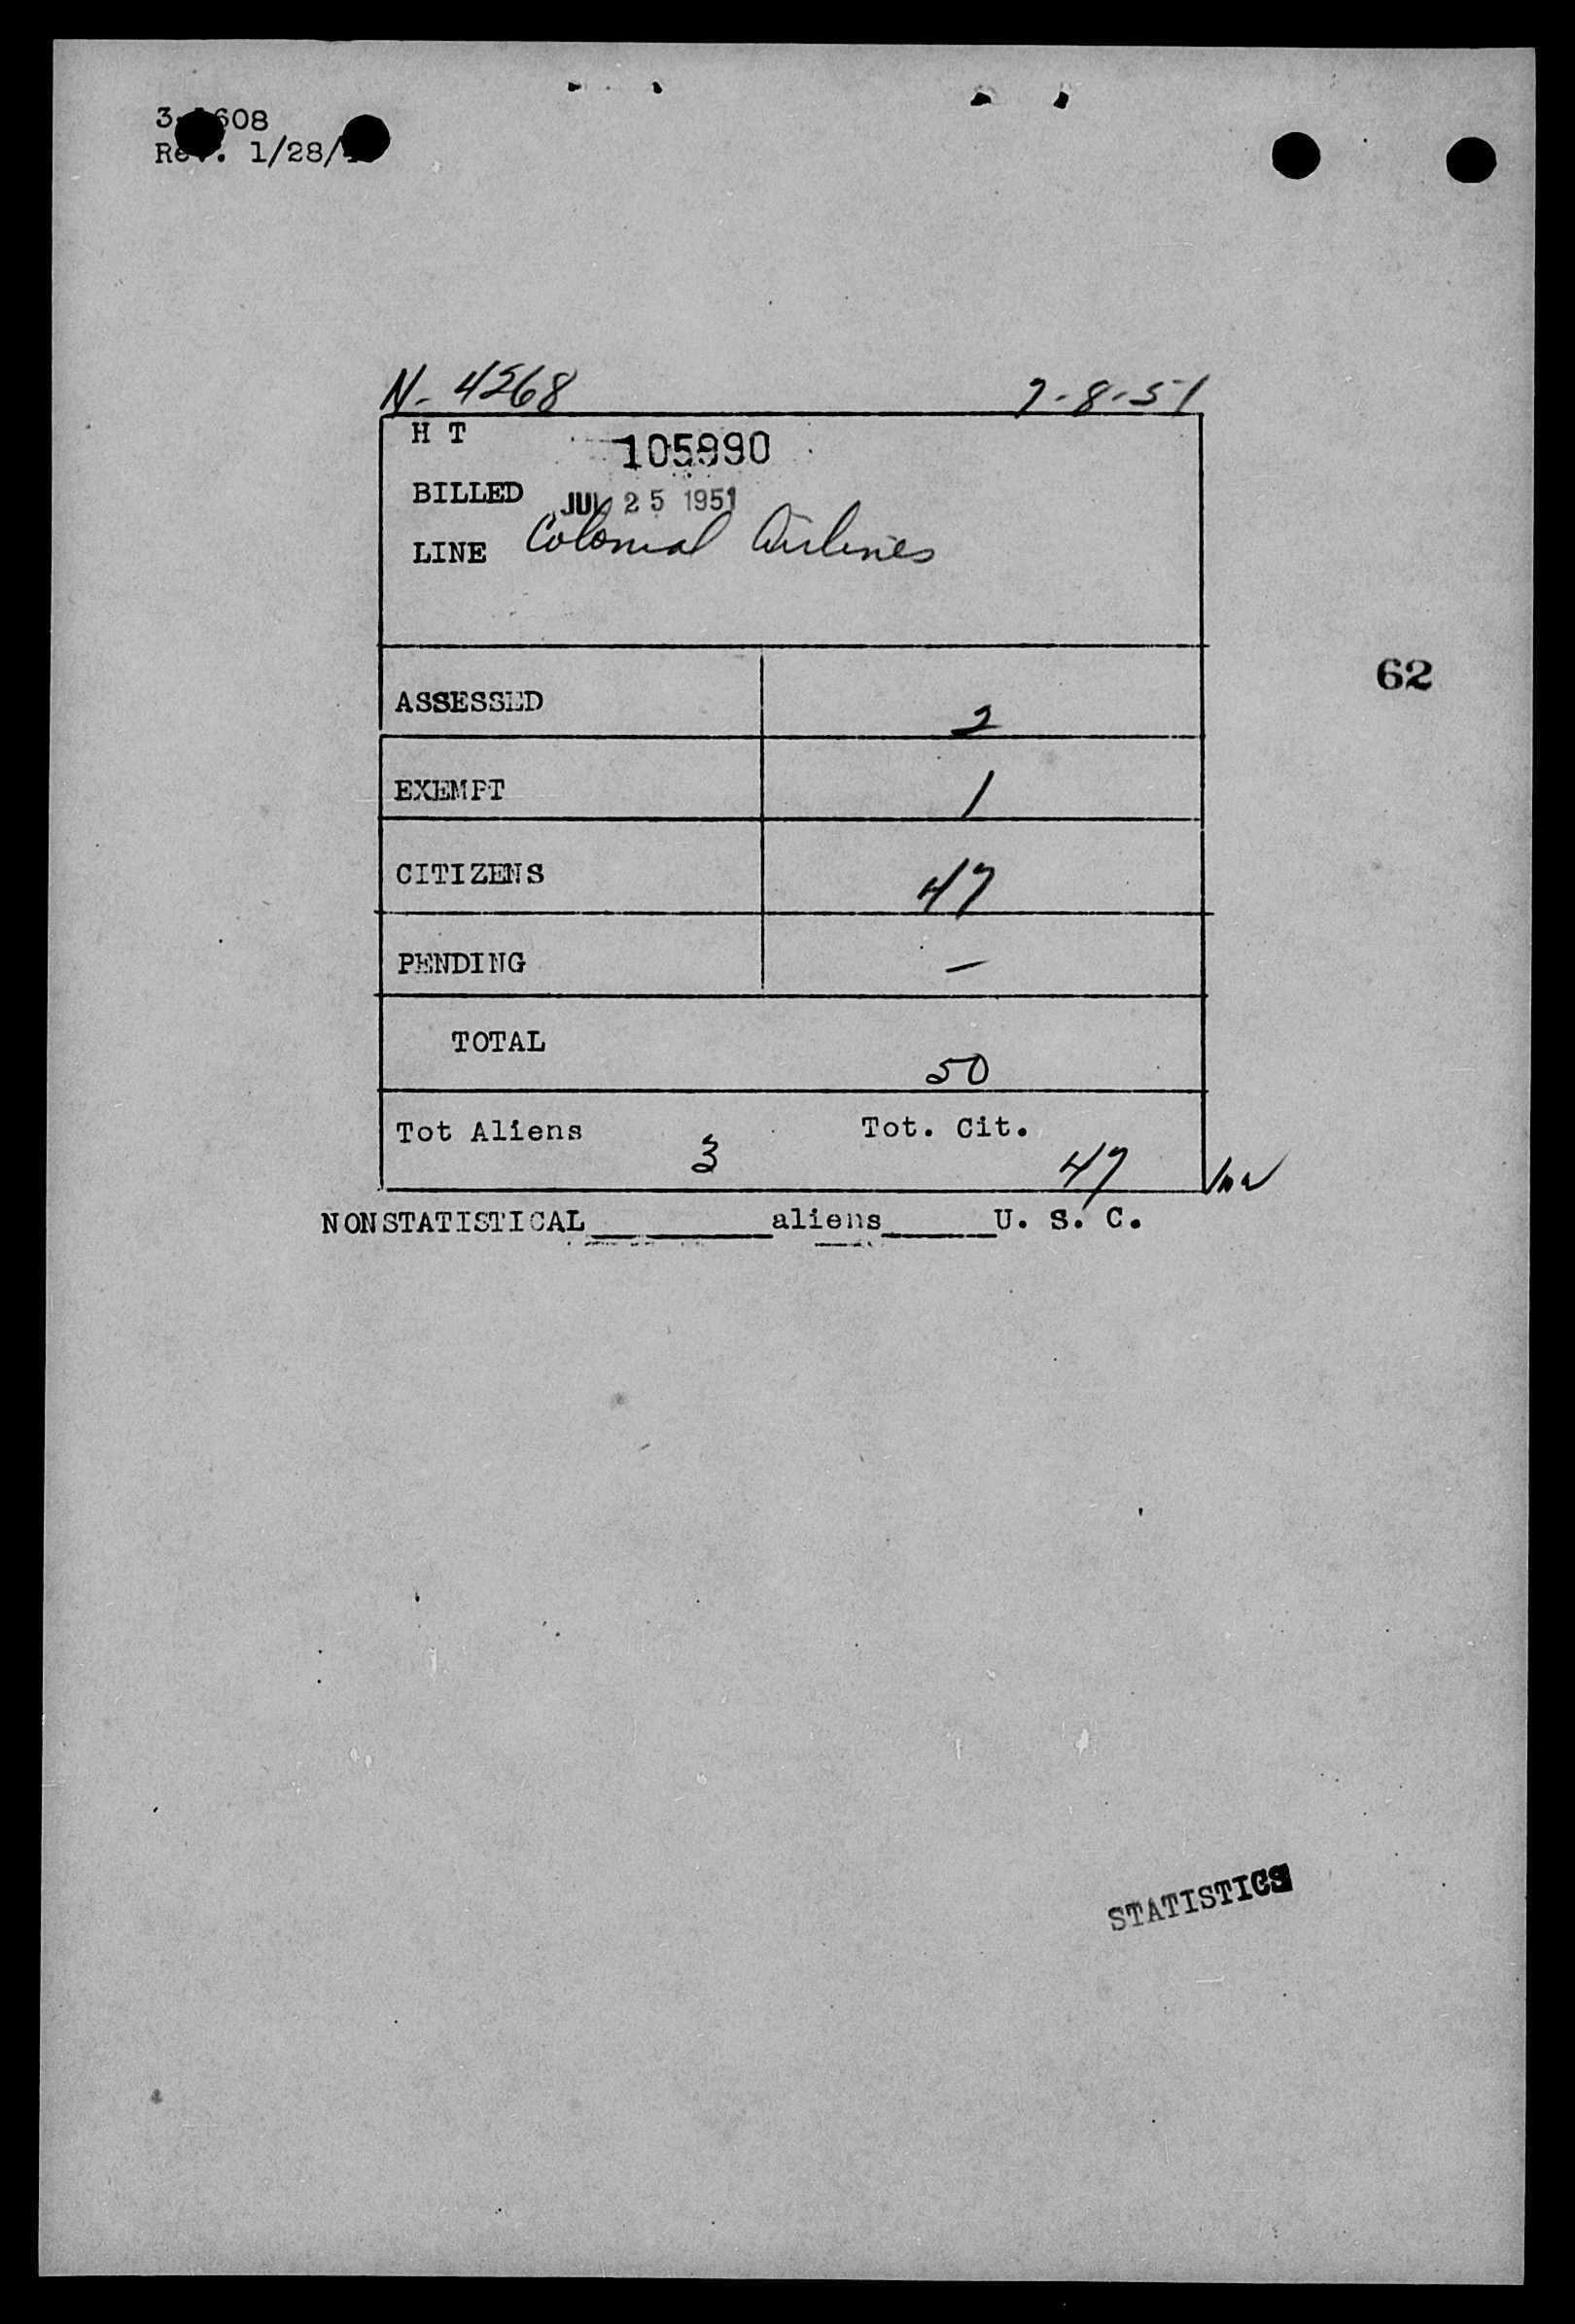 608
1/28/
N- 4268 7-8-51
H T 105990
BILLED JUL 25 1951
LINE Colonial Airlines
62
ASSESSED 2
EXEMPT 1
CITIZENS 47
PENDING —
TOTAL 50
Tot Aliens 3 Tot. Cit. 47
NONSTATISTICAL________aliens_____U. S. C.
STATISTICS